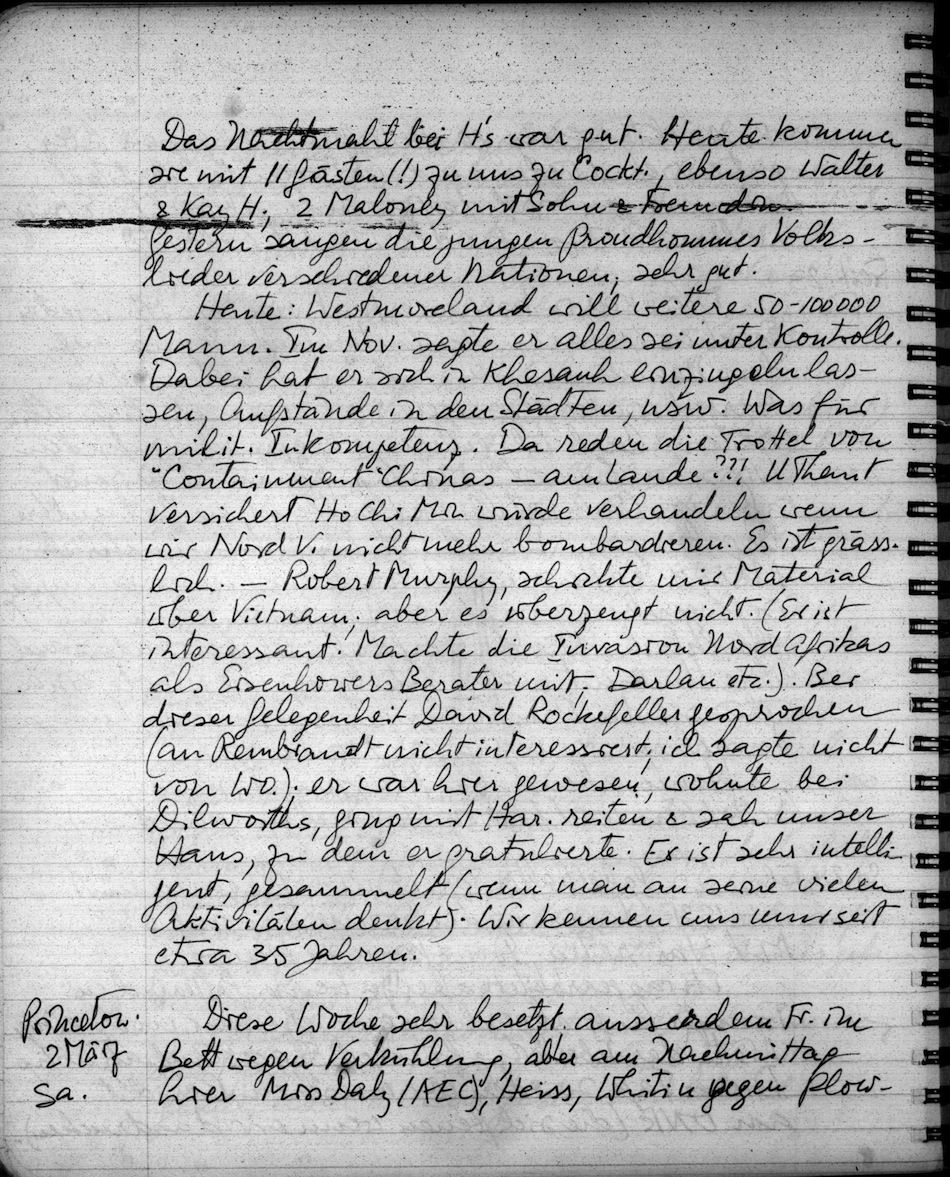 Das Nachtmahl bei H's war gut. Heute kommen
sie mit 11 Gästen (!) zu uns zu Cockt., ebenso Walter
& Kay H., 2 Maloney mit Sohn
Gestern sangen die jungen Proudhommes Volks-
lieder verschiedener Nationen, sehr gut.
Heute: Westmoreland will weitere 50-100000
Mann. Im Nov. sagte er alles sei unter Kontrolle.
Dabei hat er sich in Khesanh einzingeln las-
sen, Aufstände in den Städten, usw. Was für
milit. Inkompetenz. Da reden die Trottel von
"Containment" Chinas – am Lande??! U Thant
versichert Ho Chi Min würde verhandeln wenn
wir Nord V. nicht mehr bombardieren. Es ist gräss-
lich. – Robert Murphy, schickte mir Material
über Vietnam, aber es überzeugt nicht. (Er ist
interessant. Machte die Invasion Nord Afrikas
als Eisenhowers Berater mit, Darlan etc.). Bei
dieser Gelegenheit David Rockefeller gesprochen
(an Rembrandt nicht interessiert, ich sagte nicht
von wo.); er war hier gewesen, wohnte bei
Dilworths, ging mit Har. reiten & sah unser
Haus, zu dem er gratulierte. Er ist sehr intelli-
gent, gesammelt (wenn man an seine vielen
Aktivitäten denkt). Wir kennen uns nur seit
etwa 35 Jahren.
Princeton.
2 März
Sa.
Diese Woche sehr besetzt. ausserdem Fr. im
Bett wegen Verkühlung, aber am Nachmittag
hier Miss Daly (AEC), Heiss, Whitin gegen Plow-